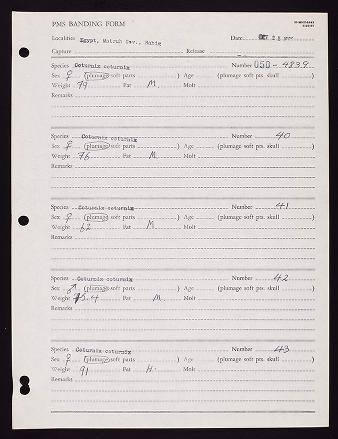 PMS BANDING FORM
Localities Egypt, Matruh Gov., Bahig Date OCT 28
Capture Release
Species Coturnix coturnix Number 050-4839
Sex ♀ (plumage soft parts ) Age (plumage soft pts. skull )
Weight 79 Fat M. Molt
Remarks
Species Coturnix coturnix Number 40
Sex ♀ (plumage soft parts ) Age (plumage soft pts. skull )
Weight 76 Fat M. Molt
Remarks
Species Coturnix coturnix Number 41
Sex ♀ (plumage soft parts ) Age (plumage soft pts. skull )
Weight 62 Fat M. Molt
Remarks
Species Coturnix coturnix Number 42
Sex ♂ (plumage soft parts ) Age (plumage soft pts. skull )
Weight 75.4 Fat M. Molt
Remarks
Species Coturnix coturnix Number 43
Sex ♀ (plumage soft parts ) Age (plumage soft pts. skull )
Weight 91 Fat H. Molt
Remarks